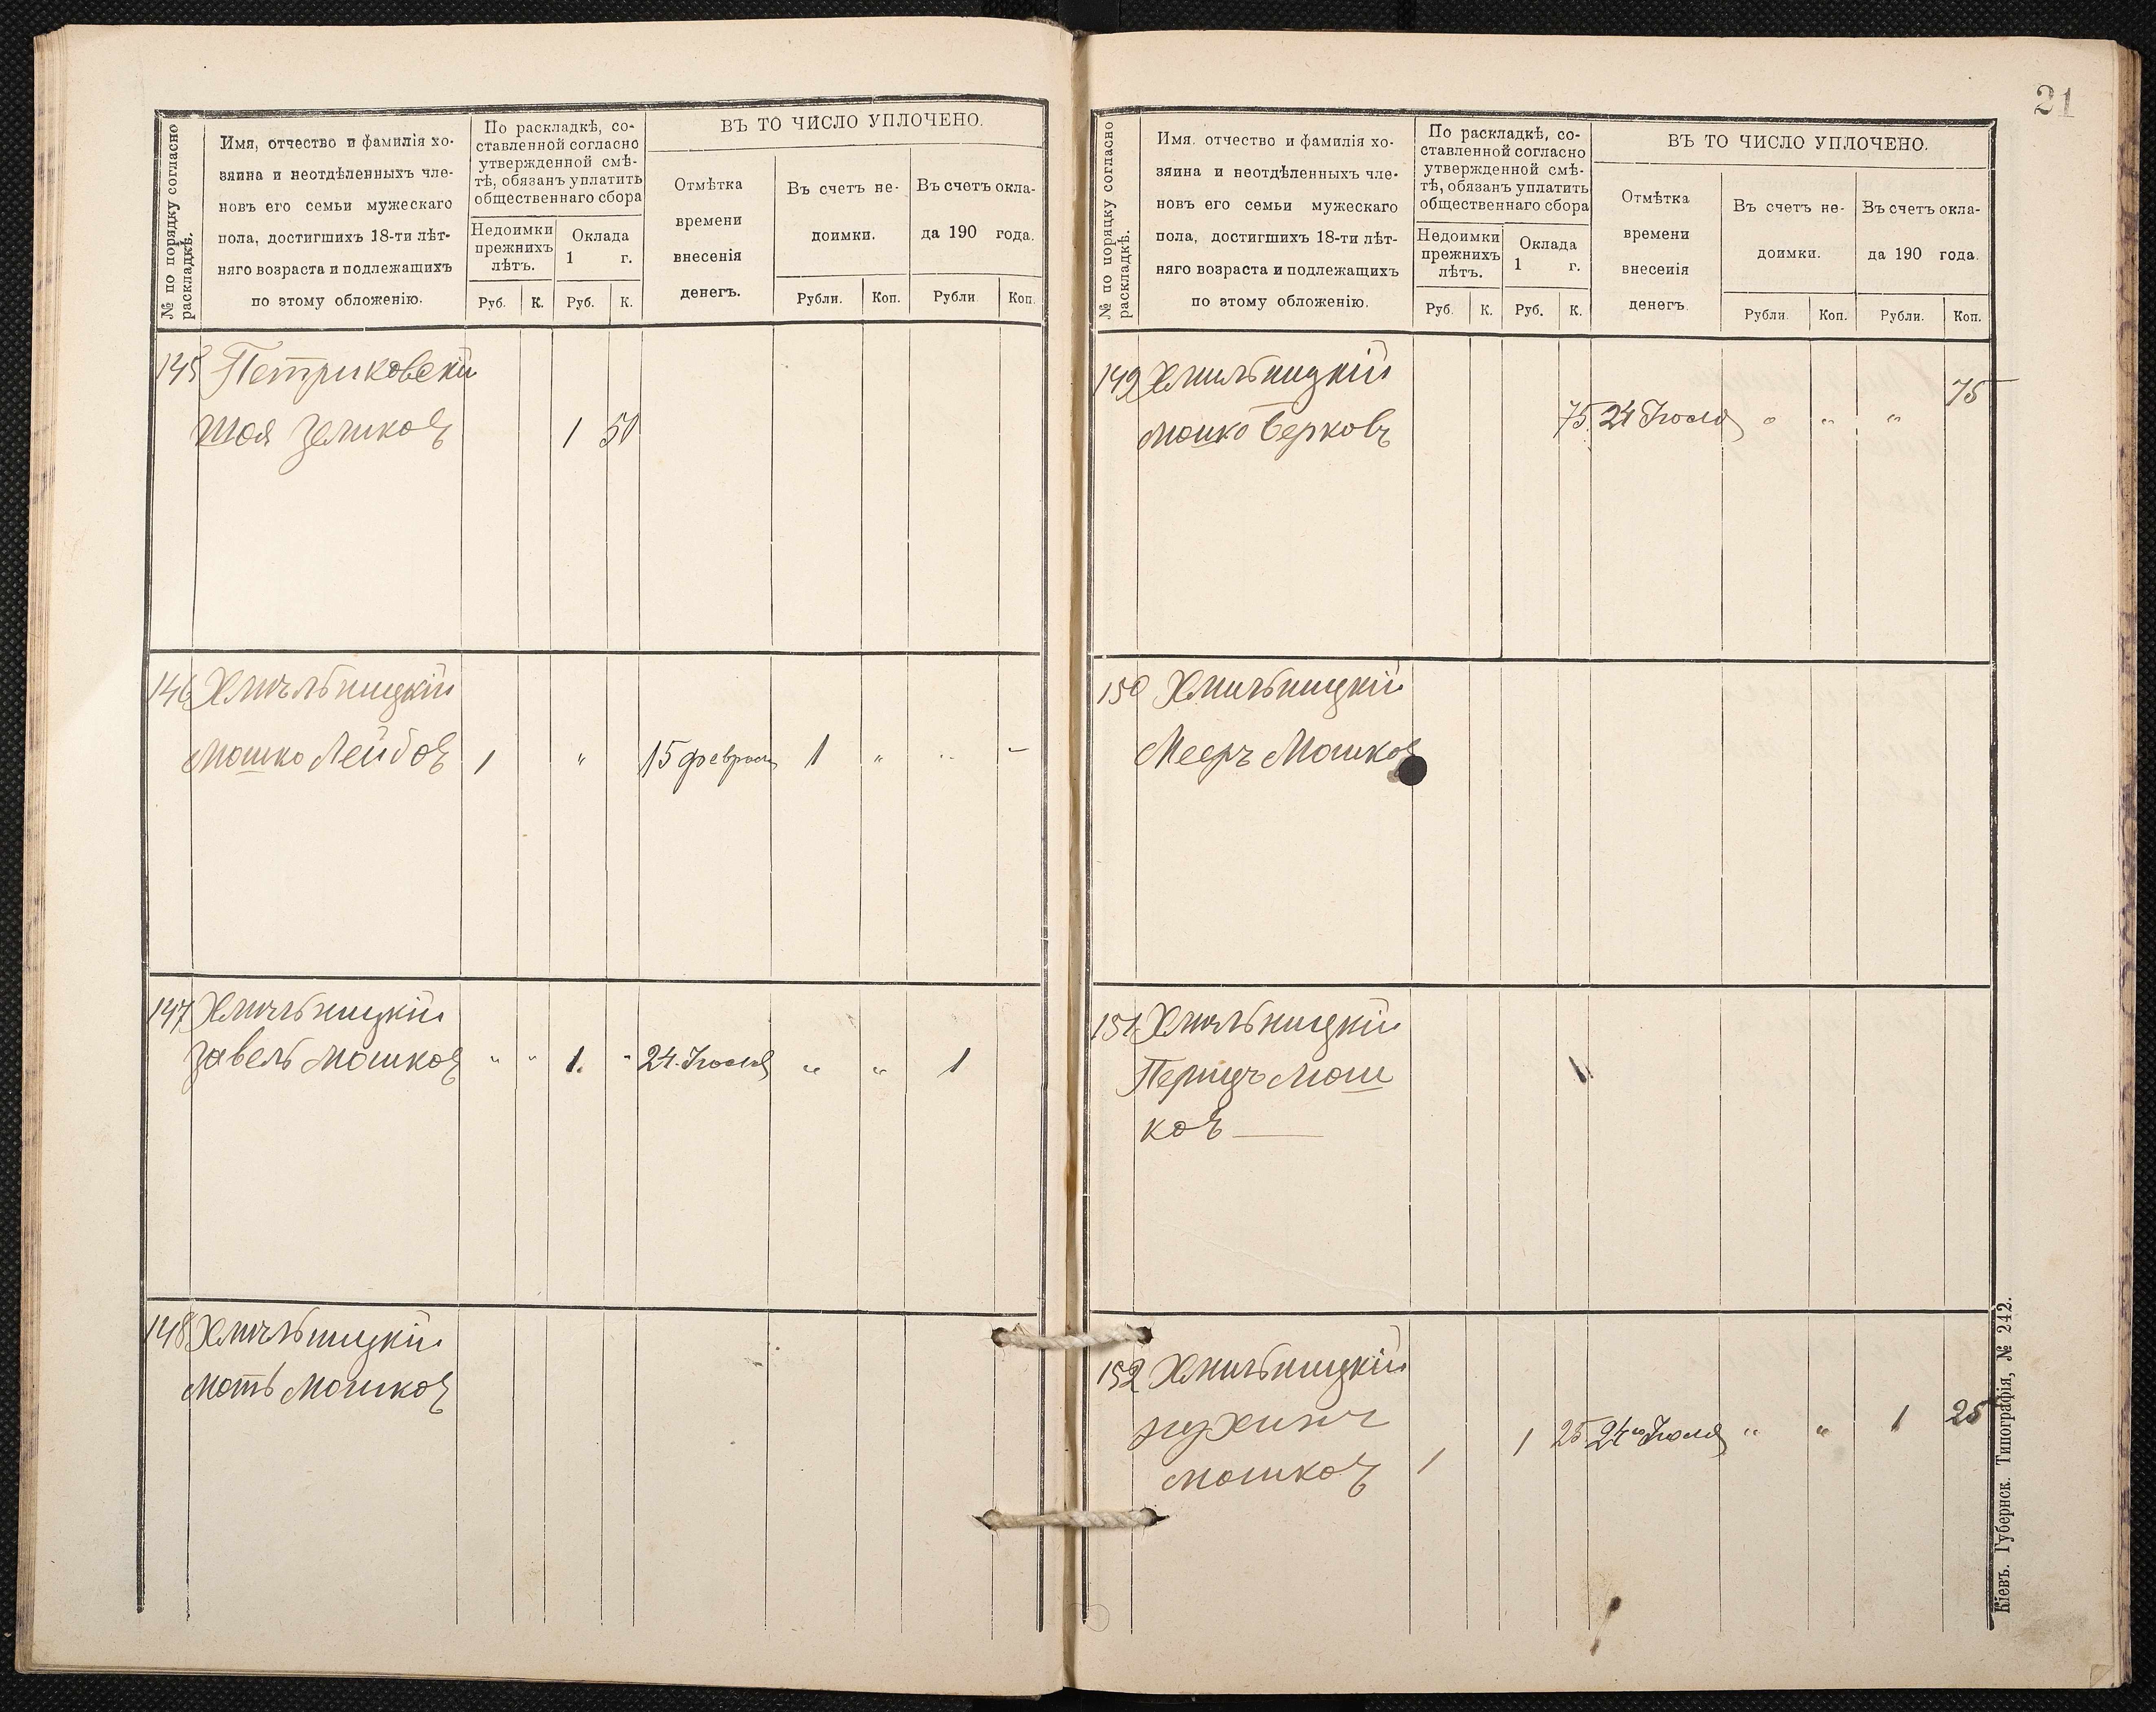 21
№ по порядку согласно
раскладкѣ.
Имя, отчество и фамилія хо-
зяина и неотдѣленныхъ чле-
новъ его семьи мужескаго
пола, достигшихъ 18-ти лѣт-
няго возраста и подлежащихъ
по этому обложенію.
По раскладкѣ, со-
ставленной согласно
утвержденной смѣ-
тѣ, обязанъ уплатить
общественнаго сбора
Недоимки
прежнихъ
лѣтъ.
Оклада
1 г.
Руб. К. Руб. К.
ВЪ ТО ЧИСЛО УПЛОЧЕНО.
Отмѣтка
времени
внесенія
денегъ.
Въ счетъ не-
доимки.
Въ счетъ окла-
да 190 года.
Рубли. Коп. Рубли. Коп.
145 Петриковскій
Шоя Зеликовъ 1 50
146 Хмильницкій
Мошко Лейбовъ 1 " 15 февраля 1 " " -
147 Хмильницкій
Завель Мошковъ " " 1. " 24 Іюля " " 1
148 Хмильницкій
Моть Мошковъ
№ по порядку согласно
раскладкѣ.
Имя. отчество и фамилія хо-
зяина и неотдѣленныхъ чле-
новъ его семьи мужескаго
пола, достигшихъ 18-ти лѣт-
няго возраста и подлежащихъ
по этому обложенію.
По раскладкѣ, со-
ставленной согласно
утвержденной смѣ-
тѣ, обязанъ уплатить
общественнаго сбора
Недоимки
прежнихъ
лѣтъ.
Оклада
1 г.
Руб. К. Руб. К.
ВЪ ТО ЧИСЛО УПЛОЧЕНО.
Отмѣтка
времени
внесенія
денегъ.
Въ счетъ не-
доимки.
Въ счетъ окла-
да 190 года.
Рубли. Коп. Рубли. Коп.
149 Хмильницкій
Мошко Берковъ 75 24 Іюля " " " 75
150 Хмильницкій
Мееръ Мошковъ
151 Хмильницкій
Перицъ Мош
ковъ 1
152 Хмильницкій
Мошковъ 1 1 25 24го Іюля " " 1 25
Кіевъ. Губернск. Типографія, № 242.